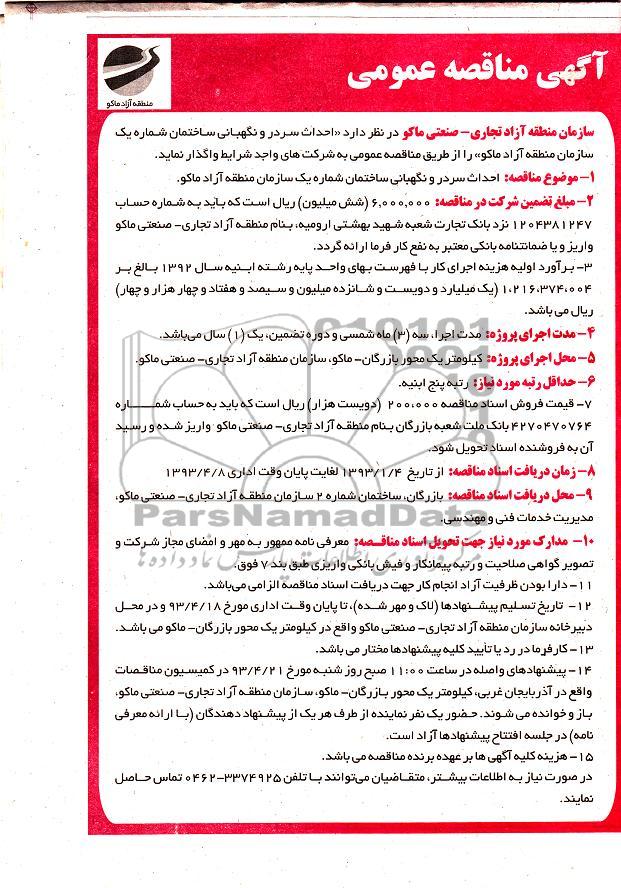 آگهی مناقصه عمومی
منطقه آزاد ماکو
سازمان منطقه آزاد تجاری- صنعتی ماکو در نظر دارد «احداث سردر و نگهبانی ساختمان شماره یک
سازمان منطقه آزاد ماکو» را از طریق مناقصه عمومی به شرکت های واجد شرایط واگذار نماید.
۱- موضوع مناقصه: احداث سردر و نگهبانی ساختمان شماره یک سازمان منطقه آزاد ماکو.
۲- مبلغ تضمین شرکت در مناقصه: ۶,۰۰۰,۰۰۰ (شش میلیون) ریال است که باید به شماره حساب
۱۲۰۴۳۸۱۲۴۷ نزد بانک تجارت شعبه شهید بهشتی ارومیه، بنام منطقه آزاد تجاری- صنعتی ماکو
واریز و یا ضمانتنامه بانکی معتبر به نفع کار فرما ارائه گردد.
۳- برآورد اولیه هزینه اجرای کار با فهرست بهای واحد پایه رشته ابنیه سال ۱۳۹۲ بالغ بر
۱,۲۱۶,۳۷۴,۰۰۴ (یک میلیارد و دویست و شانزده میلیون و سیصد و هفتاد و چهار هزار و چهار)
ریال می باشد.
۴- مدت اجرای پروژه: مدت اجرا، سه (۳) ماه شمسی و دوره تضمین، یک (۱) سال می‌باشد.
۵- محل اجرای پروژه: کیلومتر یک محور بازرگان- ماکو، سازمان منطقه آزاد تجاری- صنعتی ماکو.
۶- حداقل رتبه مورد نیاز: رتبه پنج ابنیه.
۷- قیمت فروش اسناد مناقصه ۲۰۰,۰۰۰ (دویست هزار) ریال است که باید به حساب شماره
۴۲۷۰۴۷۰۷۶۴ بانک ملت شعبه بازرگان بنام منطقه آزاد تجاری- صنعتی ماکو واریز شده و رسید
آن به فروشنده اسناد تحویل شود.
۸- زمان دریافت اسناد مناقصه: از تاریخ ۱۳۹۳/۱/۴ لغایت پایان وقت اداری ۱۳۹۳/۴/۸
۹- محل دریافت اسناد مناقصه: بازرگان، ساختمان شماره ۲ سازمان منطقه آزاد تجاری- صنعتی ماکو،
مدیریت خدمات فنی و مهندسی.
ParsNamadData
۱۰- مدارک مورد نیاز جهت تحویل اسناد مناقصه: معرفی نامه ممهور به مهر و امضای مجاز شرکت و
تصویر گواهی صلاحیت و رتبه پیمانکار و فیش بانکی واریزی طبق بند ۷ فوق.
۱۱- دارا بودن ظرفیت آزاد انجام کار جهت دریافت اسناد مناقصه الزامی می‌باشد.
۱۲- تاریخ تسلیم پیشنهادها (لاک و مهر شده)، تا پایان وقت اداری مورخ ۹۳/۴/۱۸ و در محل
دبیرخانه سازمان منطقه آزاد تجاری- صنعتی ماکو واقع در کیلومتر یک محور بازرگان- ماکو می باشد.
۱۳- کارفرما در رد یا تأیید کلیه پیشنهادها مختار می باشد.
۱۴- پیشنهادهای واصله در ساعت ۱۱:۰۰ صبح روز شنبه مورخ ۹۳/۴/۲۱ در کمیسیون مناقصات
واقع در آذربایجان غربی، کیلومتر یک محور بازرگان- ماکو، سازمان منطقه آزاد تجاری- صنعتی ماکو،
باز و خوانده می شوند. حضور یک نفر نماینده از طرف هر یک از پیشنهاد دهندگان (با ارائه معرفی
نامه) در جلسه افتتاح پیشنهادها آزاد است.
۱۵- هزینه کلیه آگهی ها بر عهده برنده مناقصه می باشد.
در صورت نیاز به اطلاعات بیشتر، متقاضیان می‌توانند با تلفن ۳۳۷۴۹۲۵-۰۴۶۲ تماس حاصل
نمایند.